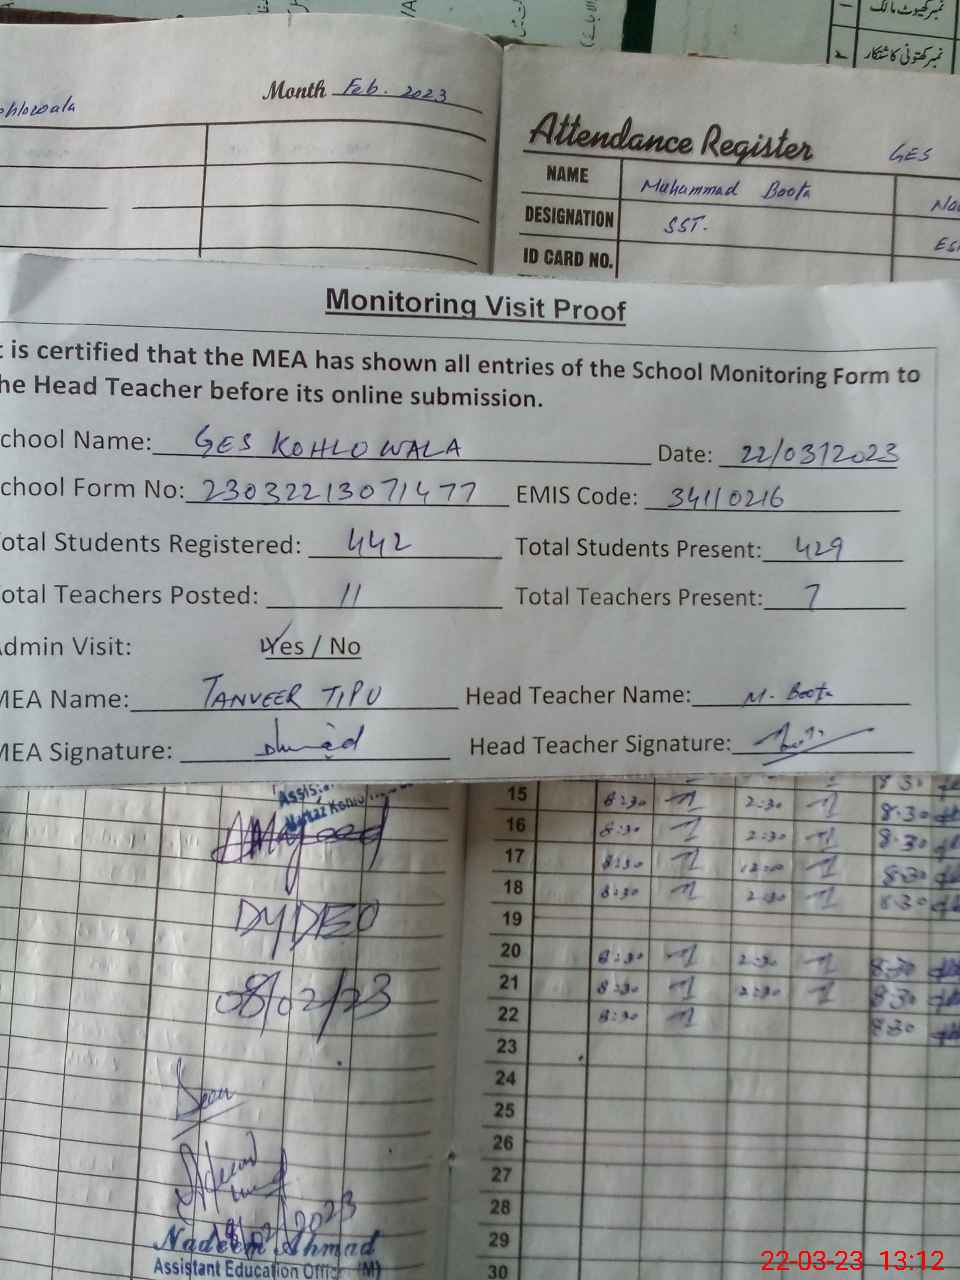 نمبر کھیوٹ مالک
۲ نمبر کھتونی کاشتکار
Month Feb. 2023
ohlowala
Attendance Register GES
NAME Muhammad Boota
DESIGNATION SST.
ID CARD NO.
Monitoring Visit Proof
t is certified that the MEA has shown all entries of the School Monitoring Form to
he Head Teacher before its online submission.
chool Name: GES KOHLOWALA Date: 22/03/2023
chool Form No: 23032213071477 EMIS Code: 34110216
otal Students Registered: 442 Total Students Present: 429
otal Teachers Posted: 11 Total Teachers Present: 7
dmin Visit: Yes / No
MEA Name: TANVEER TIPU Head Teacher Name: M. Boota
MEA Signature: Head Teacher Signature:
15 8:30 2:30 8:30
16 8:30 2:30 8.30
17 8:30 12:00 8.30
18 8:30 2:30 8.30
19
20 8:30 2:30 8.30
21 8:30 2:30 8.30
22 8:30 8.30
23
24
25
26
27
28
29
30
DYDEO
08/02/23
2023
Nadeem Ahmad
Assistant Education Offic (M)
22-03-23 13:12